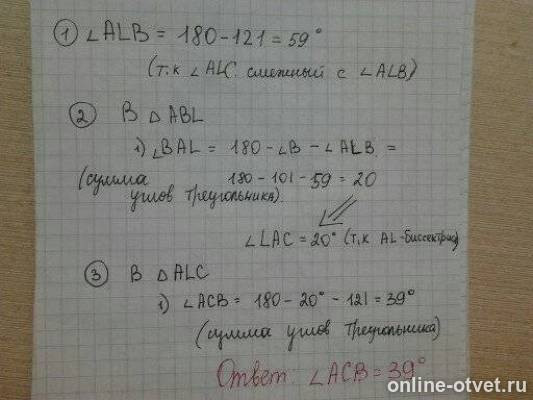 ① ∠ALB = 180 - 121 = 59°
(т.к ∠ALC смежный с ∠ALB)
② В △ ABL
1) ∠BAL = 180 - ∠B - ∠ALB =
(сумма 180 - 101 - 59 = 20
углов треугольника).
∠LAC = 20° (т.к AL-биссектриса)
③ В △ ALC
1) ∠ACB = 180 - 20° - 121 = 39°
(сумма углов треугольника)
Ответ: ∠ACB = 39°
online-otvet.ru